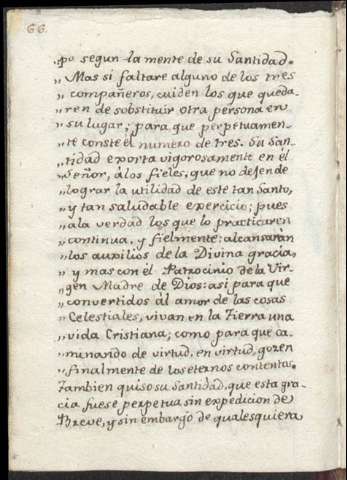 66.
„po segun la mente de su Santidad.
„Mas si faltare alguno de los tres
„compañeros, cuiden los que queda-
„ren de substituir otra persona en
„su lugar; para que perpetuamen-
„te conste él numero de tres. Su San-
„tidad exorta vigorosamente en él
„Señor, á los fieles, que no dejen de
„lograr la utilidad de este tan Santo,
„y tan saludable exercicio; pues
„a la verdad los que lo practicaren
„continua, y fielmente: alcansarán
„los auxilios de la Divina gracia,
„y mas con él Patrocinio de la Vir-
„gen Madre de Dios: asi para que
„convertidos ál amor de las cosas
„Celestiales, vivan en la Tierra una
„vida Cristiana; como para que ca-
„minando de virtud, en virtud, gozen
„finalmente de los eternos contentos.
Tambien quiso su Santidad, que esta gra-
cia fuese perpetua sin expedicion de
Breve, y sin embargo de qualesquiera